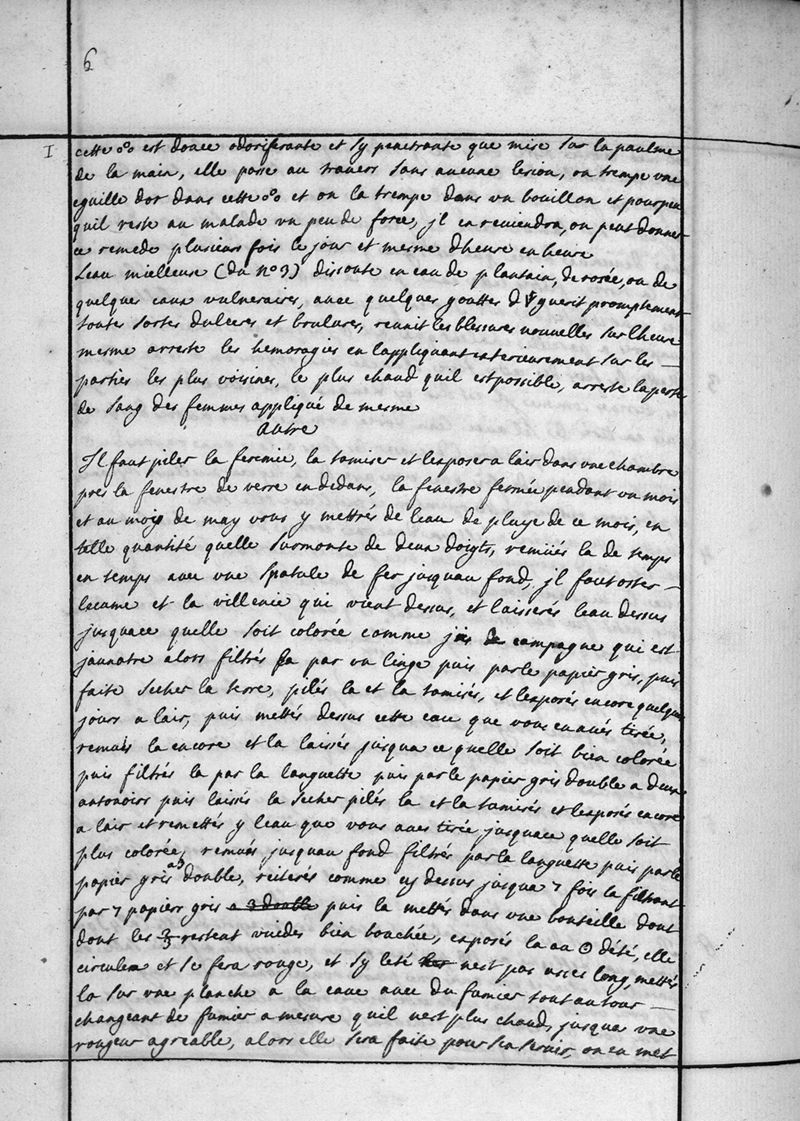 6
I
cette o°o est douce odoriferante et sy penetrante que mise sur la paulme
de la main, elle passe au travers sans aucune lesion, on trempe une
eguille dor dans cette o°o et on la trempe dans un bouillon et pourpeu
quil reste au malade un peu de force, jl en reviendra, on peut donner
ce remede plusieurs fois le jour et mesme dheure en heure
Leau mielleuse (du n° 3) dissoute en eau de plantain, de rosée, ou de
quelques eaux vulneraires, avec quelques gouttes d guerit promptement
toutes sortes dulceres et brulures, reunit les blessures nouvelles sur lheure
mesme arreste les hemoragies en lappliquant exterieurement sur les —
parties les plus voisines, le plus chaud quil est possible, arreste la perte
de sang des femmes appliqué de mesme
autre
Il faut piler la , la tamiser et lexposer a lair dans une chambre
pres la fenestre de verre en dedans, la fenestre fermée pendant un mois
et au mois de may vous y mettrés de leau de pluye de ce mois, en
telle quantité quelle surmonte de deux doigts, remüés la de temps
en temps avec une spatule de fer jusquau fond, jl faut oster —
lecume et la villenie qui vient dessus, et laisserés leau dessus
jusquace quelle soit colorée comme campagne qui est
jaunatre alors filtrés la par un linge puis par le papier gris, puis
faite secher la terre, pilés la et la tamisés, et lexposés encore quelques
jours a lair, puis mettés dessus cette eau que vous en avés tirée,
remués la encore et la laissés jusqua ce quelle soit bien colorée
puis filtrés la par la languette puis par le papier gris double a deux
antonoirs puis laissés la secher pilés la et la tamisés et lexposés encore
a lair et remettés y leau que vous avés tirée jusquace quelle soit
plus colorée, remués jusquau fond filtrés par la languette puis par le
papier gris a3 double, reiterés comme cy dessus jusqua 7 fois la filtrant
par 7 papiers gris a 3 double puis la mettés dans une bouteille dont
dont les 2/3 restent vuides bien bouchée, exposés la au ☉ dété, elle
circulera et se fera rouge, et sy leté nest pas assés long, mettés
la sur une planche a la cave avec du fumier tout autour —
changeant de fumier a mesure quil nest plus chaud, jusqua une
rougeur agreable, alors elle sera faite pour sen servir, on en met